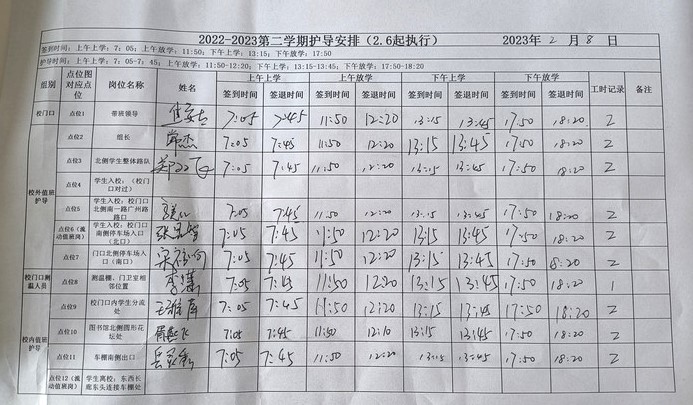 2022-2023第二学期护导安排（2.6起执行） 2023年 2 月 8 日
签到时间：上午上学：7：05；上午放学：11:50；下午上学：13:15；下午放学：17:50
护导时间：上午上学：7：05-7：45；上午放学：11:50-12:20；下午上学：13:15-13:45；下午放学：17:50-18:20
组别 点位图对应点位 岗位名称 姓名 上午上学 上午放学 下午上学 下午放学 工时记录 备注
签到时间 签退时间 签到时间 签退时间 签到时间 签退时间 签到时间 签退时间
校门口 点位1 带班领导 7:05 7:45 11:50 12:20 13:15 13:45 17:50 18:20 2
校外值班护导 点位2 组长 7:05 7:45 11:50 12:20 13:15 13:45 17:50 18:20 2
点位3 北侧学生整体路队 7:05 7:45 11:50 12:20 13:15 13:45 17:50 18:20 2
点位4 学生入校：（校门口对过）
点位5 学生入校：校门口北侧南一路广州路路口 7:05 7:45 11:50 12:20 13:15 13:45 17:50 18:20 2
点位6（流动值班岗） 学生入校：校门口南侧停车场入口（北口） 7:05 7:45 11:50 12:20 13:15 13:45 17:50 18:20 2
点位7 门口北侧停车场入口（南口） 7:05 7:45 11:50 12:20 13:15 13:45 17:50 18:20 2
校门口测温人员 点位8 测温棚、门卫室相邻位置 7:05 7:45 11:50 12:20 13:15 13:45 17:50 18:20 1
校内值班护导 点位9 校门口内学生分流处 7:05 7:45 11:50 12:20 13:15 13:45 17:50 18:20 2
点位10 图书馆北侧圆形花坛处 7:05 7:45 11:50 12:10 13:15 13:45 17:50 18:20 2
点位11 车棚南侧出口 7:05 7:45 11:50 12:20 13:15 13:45 17:50 18:20 2
点位12（流动值班岗） 学生离校：东西长廊东头连接车棚处